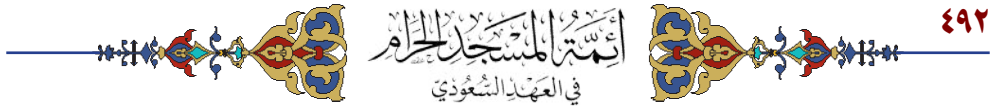 ٤٩٢
أئمة المسجد الحرام
في العهد السعودي